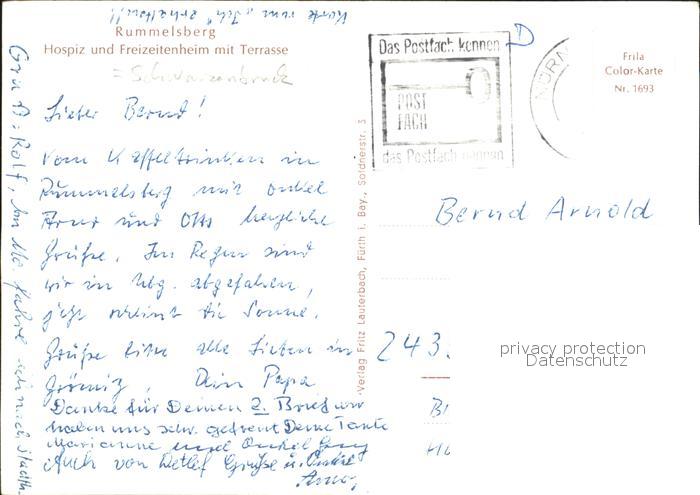 Karte von "Ich" erhalten!!
Rummelsberg
Hospiz und Freizeitenheim mit Terrasse
= Schwarzenbruck
Lieber Bernd!
Vom Kaffeetrinken in
Rummelsberg mit Onkel
Arno und Otto herzliche
Grüße. Im Regen sind
wir in Nbg. abgefahren,
jetzt scheint die Sonne.
Grüße bitte alle Lieben in
Grömitz, Dein Papa
Danke für Deinen 2. Brief wir
haben uns sehr gefreut Deine Tante
Marianne und Onkel
Auch von Detlef Grüße u. Onkel
Arno
Rolf, fahre ich nach
Verlag Fritz Lauterbach, Fürth i. Bay., Soldnerstr. 3
Das Postfach kennen
POST
FACH
das Postfach nennen
D
NÜRN
Frila
Color-Karte
Nr. 1693
Bernd Arnold
243
privacy protection
Datenschutz